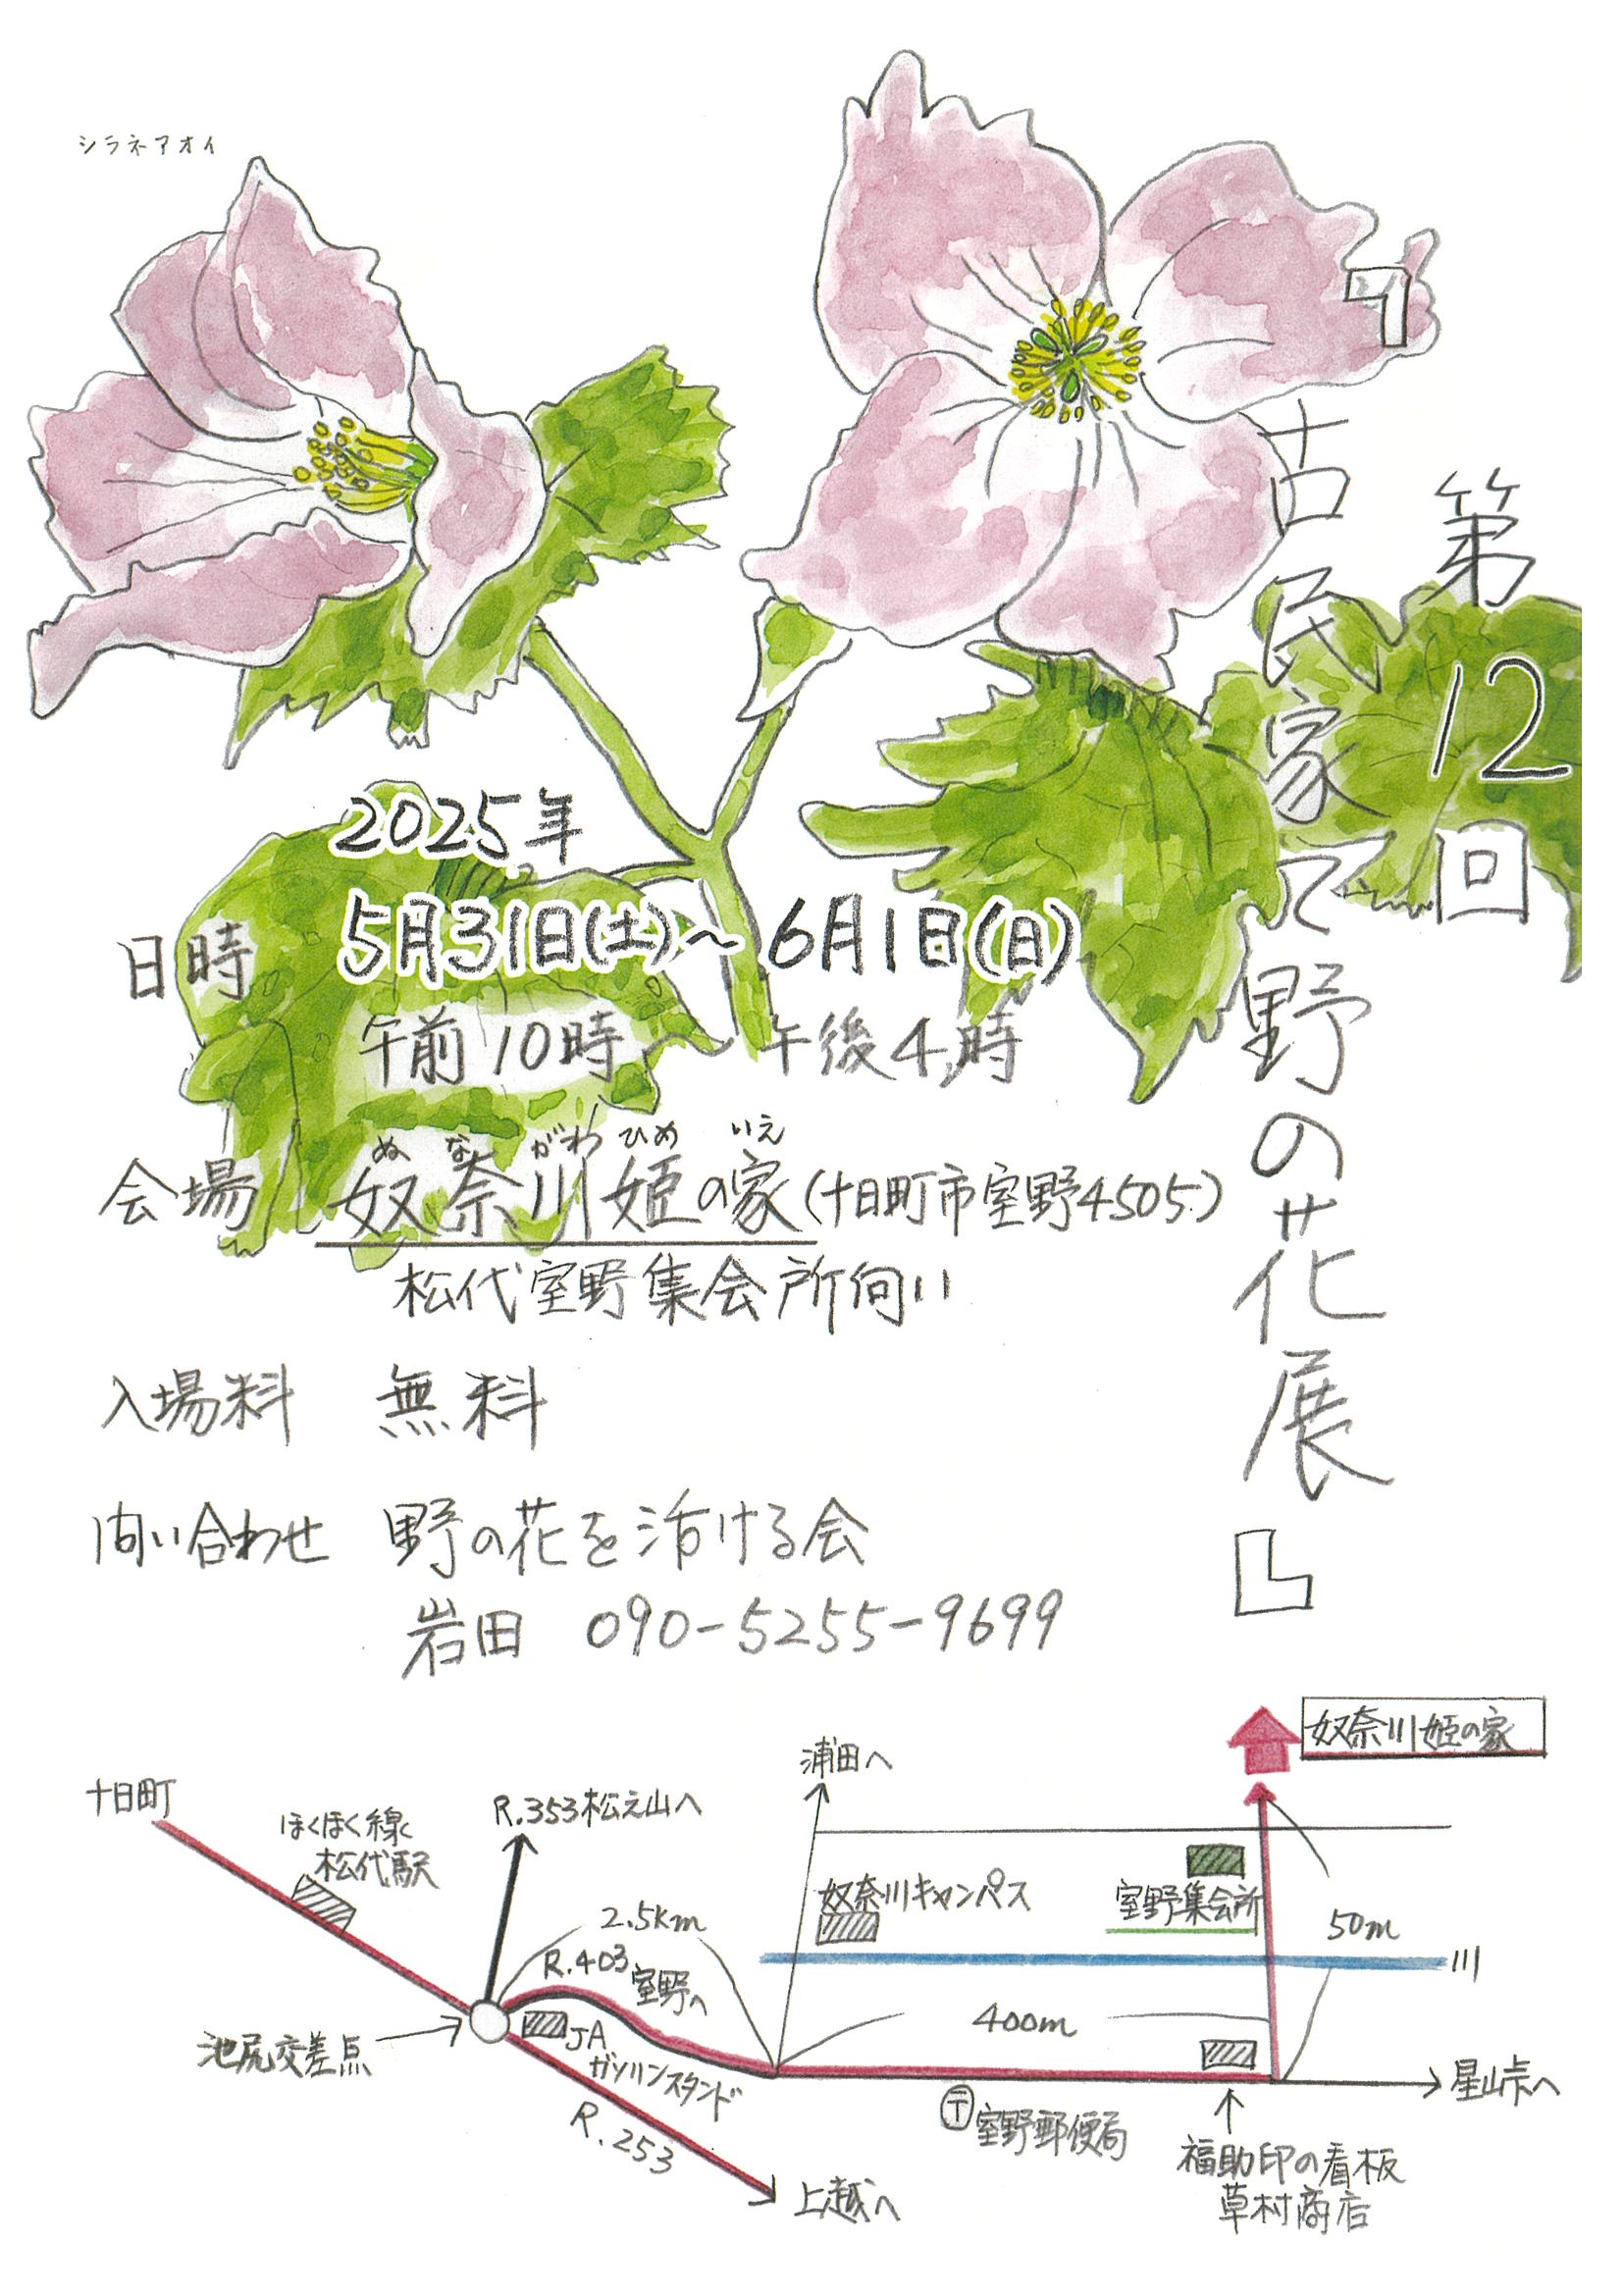 シラネアオイ
第12回
「古民家で野の花展」
2025年
日時 5月31日(土)～6月1日(日)
午前10時～午後4時
ぬ な がわ ひめ いえ
会場 奴奈川姫の家(十日町市室野4505)
松代室野集会所向い
入場料 無料
問い合わせ 野の花を活ける会
岩田 090-5255-9699
奴奈川姫の家
浦田へ
十日町
R.353松之山へ
ほくほく線
松代駅
奴奈川キャンパス
室野集会所
50m
2.5km
R.403
室野へ
川
400m
池尻交差点
JA
ガソリンスタンド
星峠へ
〒室野郵便局
R.253
福助印の看板
草村商店
上越へ